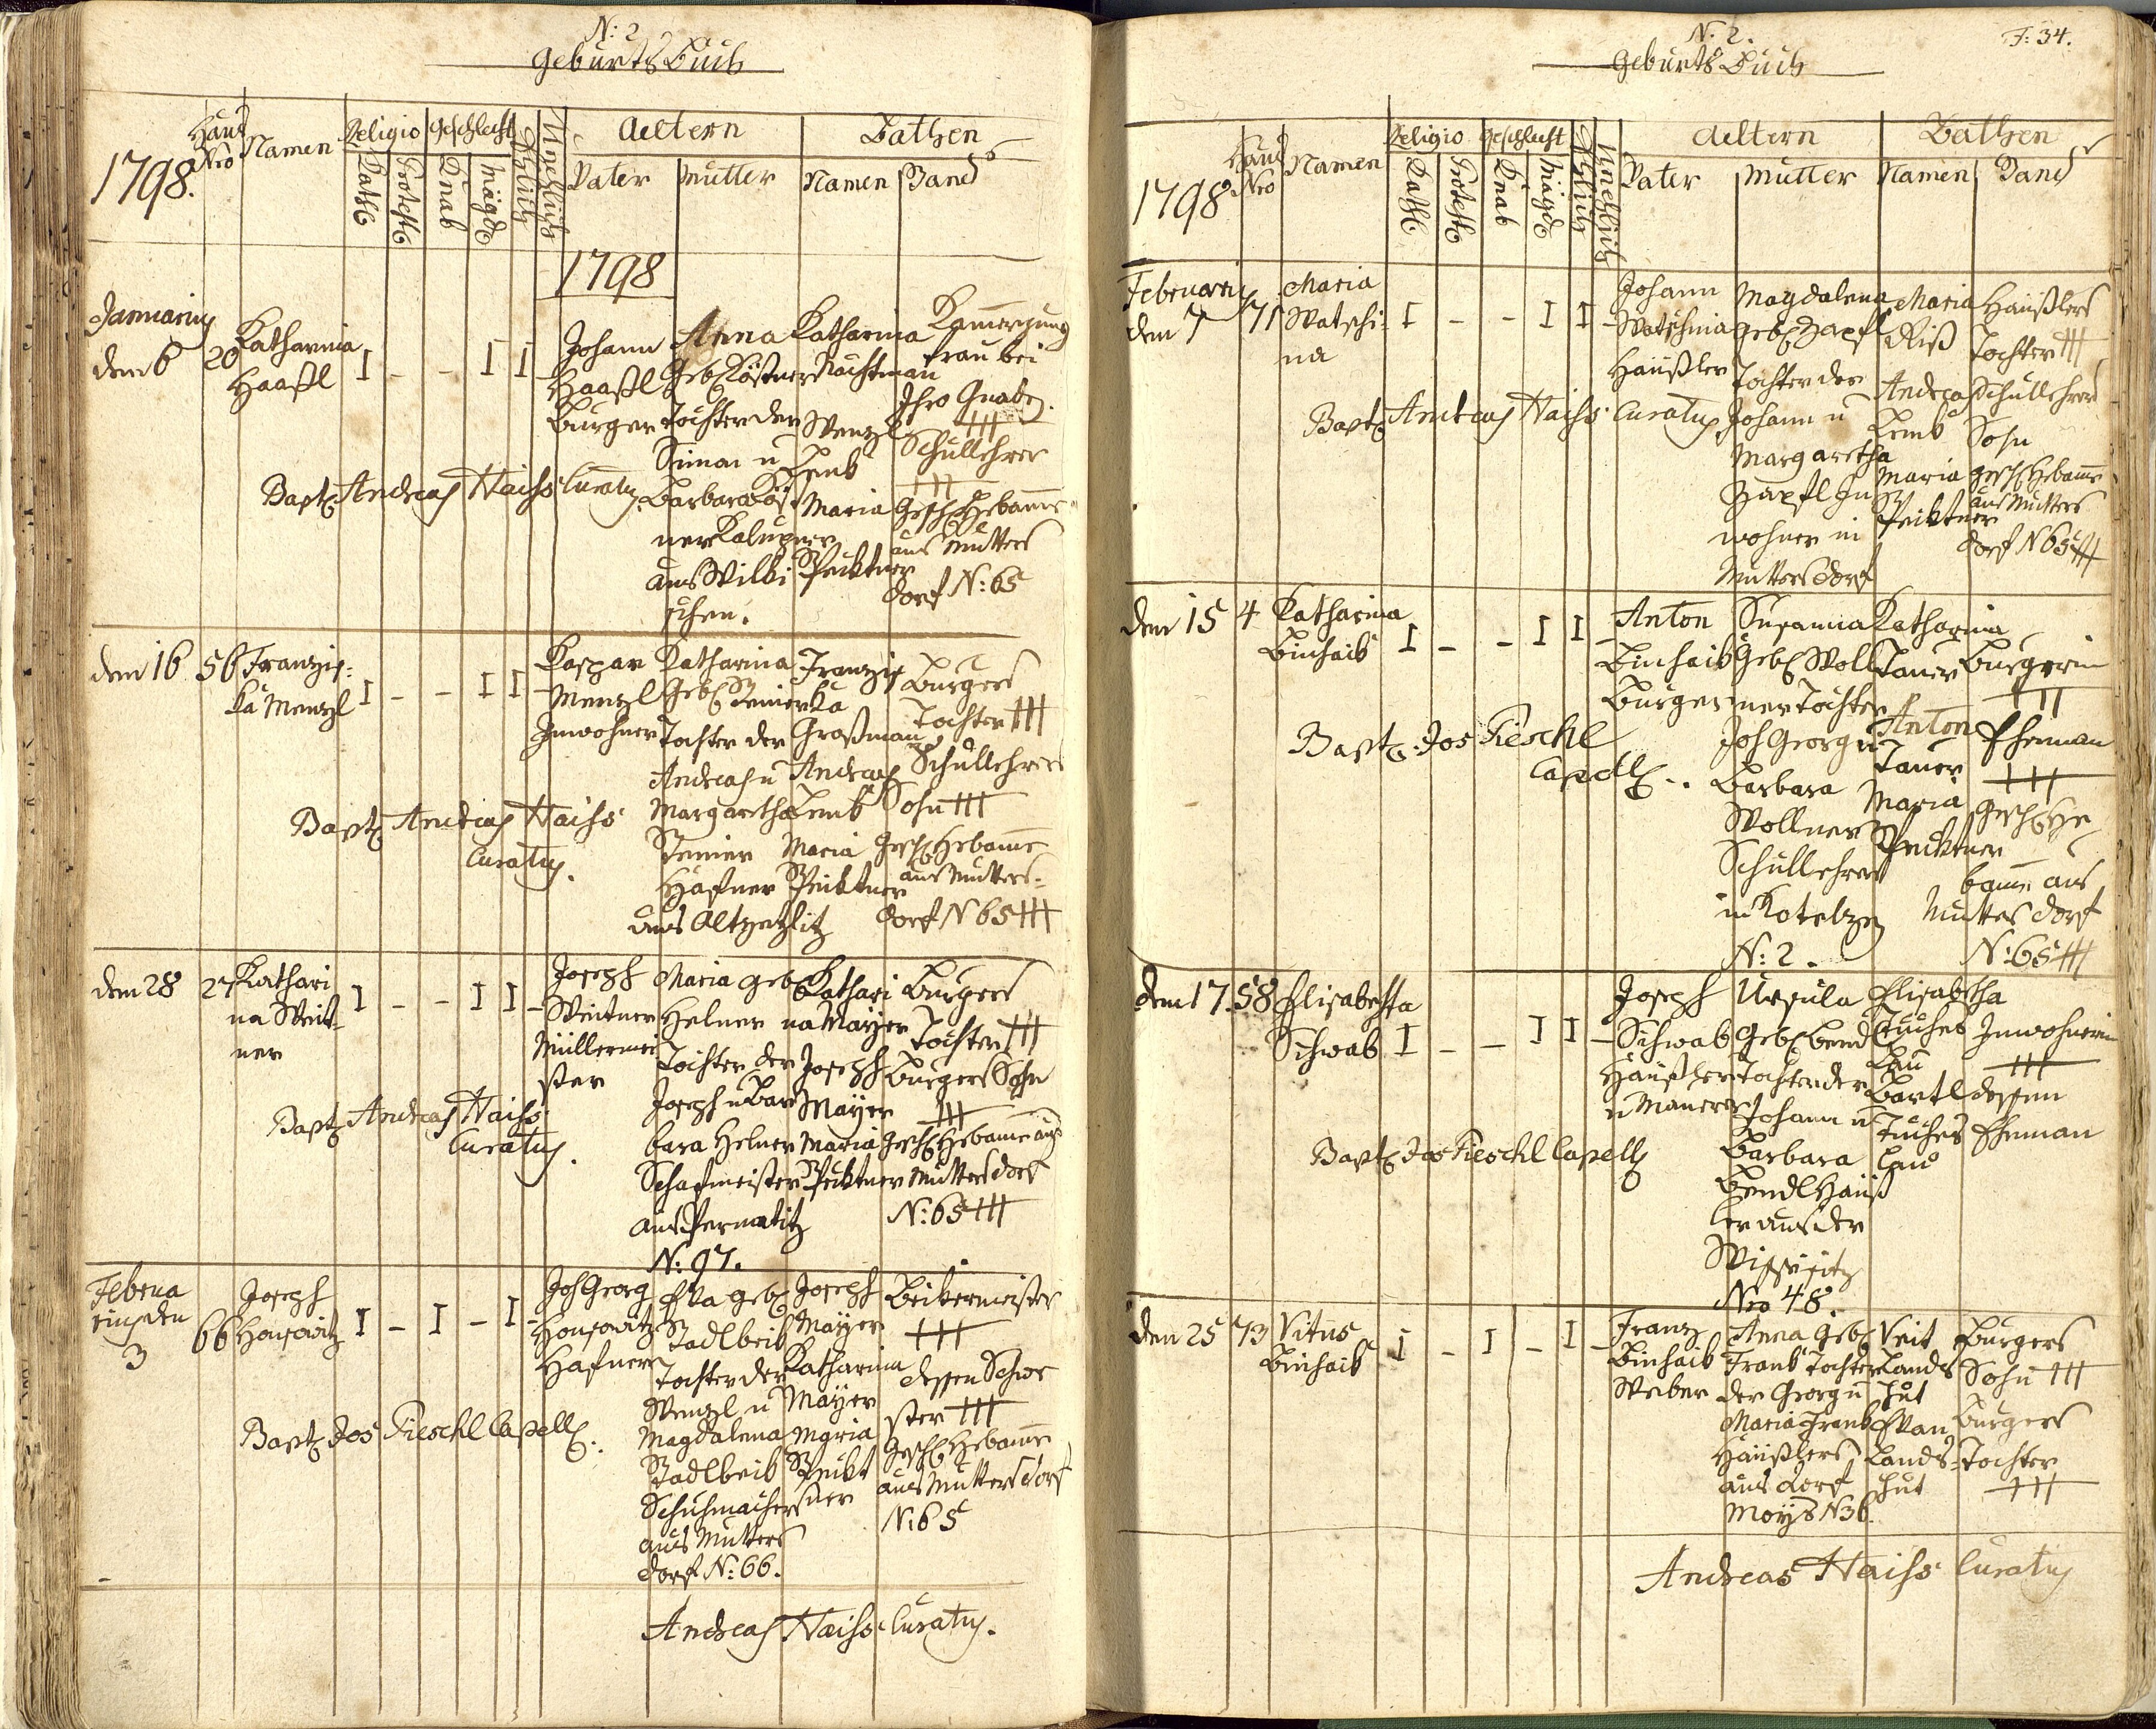 N: 2
Geburts Buch
1798.
Haus Nro
Namen
Religio
Geschlecht
Kathl
Protest
Knab
Mägd
Ehlich
Unehlich
Aeltern
Vater
Mutter
Pathen
Namen
Stand
1798
Januarius
dem 6
20
Katharina
Haaßl
I - - I I -
Johann
Haaßl
Burger
Anna
Geb
Tochter der
Simon u
Barbara
ner
aus
Katharina
Nachtman
Wenzl
Lenk
Maria
Peiktner
frau bei
Ihro Gnaden.
+++
Schullehrer
+++
Gesch Hebamme
aus Mutters
dorf N: 65
Bapt Andreas Haiss Curatus
dem 16
56
Franzis=
ka Menzl
I - - I I -
Kaspar
Menzl
Inwohner
Katharina
Geb Steiner
Tochter der
Andreas u
Margaretha
Steiner
Hafner
aus Altzetlitz
Franzis
ka
Großman
Andreas
Lenk
Maria
Peiktner
Burgers
Tochter +++
Schullehrers
Sohn +++
Gesch Hebamme
aus Mutters=
dorf N 65 +++
Bapt Andreas Haiss
Curatus.
dem 28
27
Kathari
na Weit-
ner
I - - I I -
Joseph
Weitner
Müllermei
ster
Maria geb
Helner
Tochter der
Joseph u Bar
bara Helner
Schafmeister
aus Pernatitz
N: 97.
Kathari
na Mayer
Joseph
Mayer
Maria
Peiktner
Burgers
Tochter +++
Burgers Sohn
+++
Gesch Hebamme aus
Muttersdorf
N: 65 +++
Bapt Andreas Haiss
Curatus.
Februa
rius den
3
66
Joseph
Honsowitz
I - I - I -
Joh Georg
Honsowitz
Hafner
Eva geb
Stadlbeik
Tochter der
Wenzl u
Magdalena
Stadlbeik
Schuhmachers
aus Mutters
dorf N: 66.
Joseph
Mayer
Katharina
Mayer
Maria
Peikt
ner
Bekermeister
+++
dessen Schwe
ster +++
Gesch Hebamme
aus Muttersdorf
N: 65
Bapt Jos Pieschl Capell.
Andreas Haiss Curatus.
N: 2.
Geburts Buch
F: 34.
1798
Haus Nro
Namen
Religio
Geschlecht
Kathl
Protest
Knab
Mägd
Ehlich
Unehlich
Aeltern
Vater
Mutter
Pathen
Namen
Stand
Februarius
dem 7
71
Maria
Watschi-
na
I - - I I -
Johann
Watschina
Häußler
Magdalena
geb Zapfl
Tochter des
Johann u
Margaretha
Zapfl In
wohner in
Muttersdorf
Maria
Riß
Andreas
Lenk
Maria
Peiktner
Häußlers
Tochter +++
Schullehrers
Sohn
gesch Hebamme
aus Mutters
dorf N 65 +++
Bapt Andreas Haiss Curatus
dem 15
4
Katharina
Binhaik
I - - I I -
Anton
Binhaik
Burger
Susanna
Geb Woll
ner Tochter
Joh Georg u
Barbara
Wollner
Schullehrers
in
N: 2.
Katharina
Tauer
Anton
Tauer
Maria
Peiktner
Burgerin
+++
Ehemann
+++
Gesch He
bamme aus
Muttersdorf
N: 65 +++
Bapt Jos Pieschl
Capell.
dem 17.
58
Elisabetha
Schwab
I - - I I -
Joseph
Schwab
Häußler
u Maurer
Ursula
Geb Bendl
Tochter der
Johann u
Barbara
Bendl Häuß
ler aus der
Nro 48.
Elisabetha
Bartl
Inwohnerin
+++
dessen
Ehemann
Bapt Jos Pieschl Capell
den 25
73
Vitus
Binhaik
I - I - I -
Franz
Binhaik
Weber
Anna geb
Frank Tochter
der Georg u
Maria Frank
Häußlers
aus dorf
Moys N 36.
Veit
Lands
hut
Eva
Lands=
hut
Burgers
Sohn +++
Burgers
Tochter
+++
Andreas Haiss Curatus